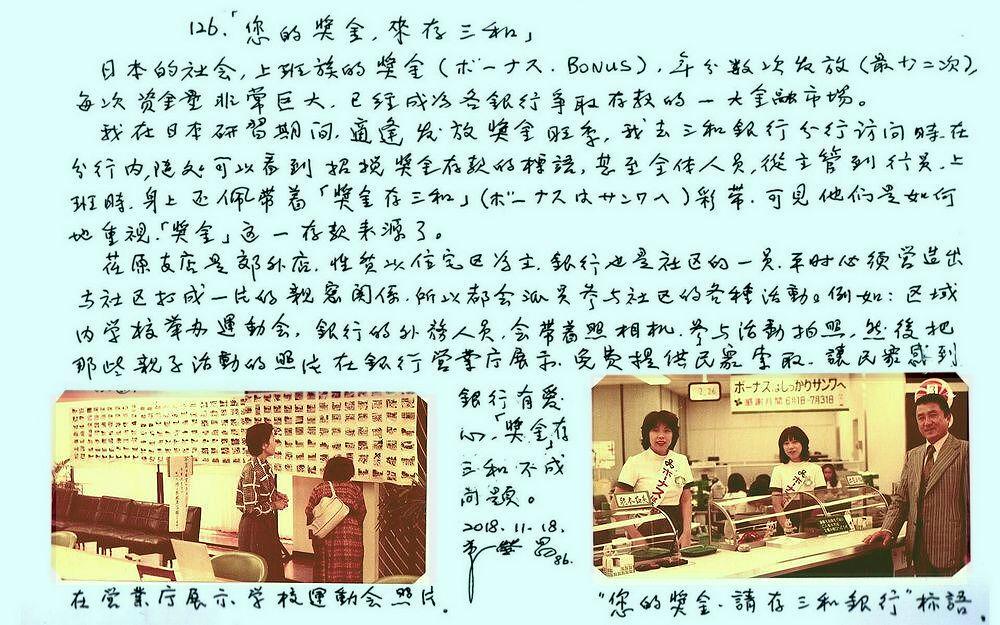 126.「您的獎金,來存三和」
日本的社会,上班族的獎金(ボーナス.BONUS),年分数次发放(最少二次),
每次資金量非常巨大,已經成为各銀行爭取存款的一大金融市场。
我在日本研習期间,適逢发放獎金旺季,我去三和銀行分行访问時,在
分行内,随处可以看到招揽獎金存款的標語,甚至全体人員,從主管到行員,上
班時,身上还佩带着「獎金存三和」(ボーナスはサンワへ)彩带.可見他們是如何
地重視「獎金」这一存款来源了。
荏原支店是郊外店,性質以住宅区为主,銀行也是社区的一員,平时必須营造出
与社区打成一片的親密関係,所以都会派員参与社区的各種活動。例如:区域
内学校举办運動会,銀行的外務人員,会带着照相机,参与活動拍照,然後把
那些親子活動的照片在銀行営業庁展示,免費提供民衆索取.讓民衆感到
銀行有爱
心,「獎金存
三和不成
问題。
2018.11.18.
86.
7.26
ボーナスはしっかりサンワへ
感謝月間 6月1日-7月31日
ボーナス
在営業庁展示学校運動会照片.
"您的獎金.請存三和銀行"标語.